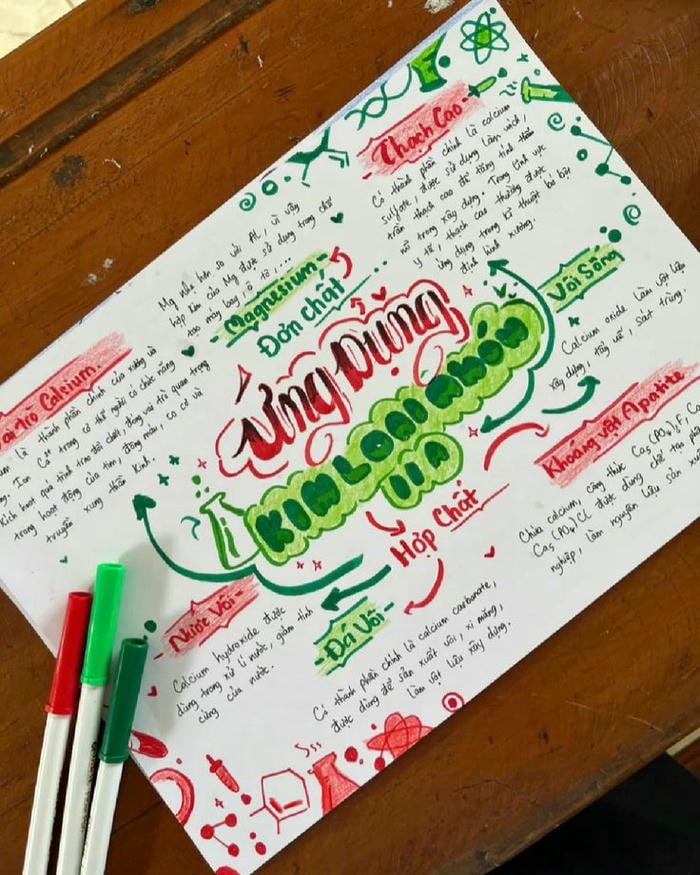 Ứng Dụng
KIM LOẠI NHÓM
IIA
Đơn chất
Magnesium
Mg nhẹ hơn so với Al, vì vậy
hợp kim của Mg được sử dụng trong chế
tạo máy bay, ô tô,...
Thạch Cao
Có thành phần chính là calcium
sulfate, được sử dụng làm vách,
trần thạch cao để tăng tính thẩm
mĩ trong xây dựng. Trong lĩnh vực
y tế, thạch cao thường được
ứng dụng trong kĩ thuật bó bột
định hình xương.
Vôi Sống
Calcium oxide làm vật liệu
xây dựng, tẩy uế, sát trùng.
Khoáng vật Apatite
Chứa calcium, công thức Ca₅(PO₄)₃F,
Ca₅(PO₄)₃Cl được dùng chế tạo
nghiệp, làm nguyên liệu sản
Hợp Chất
Đá Vôi
Có thành phần chính là calcium carbonate,
được dùng để sản xuất vôi, xi măng,
làm vật liệu xây dựng.
Nước Vôi
Calcium hydroxide được
dùng trong xử lí nước, giảm tính
cứng của nước.
Trò Calcium
là thành phần chính của xương và
Ion Ca²⁺ trong cơ thể người có chức năng
kích hoạt quá trình trao đổi chất, đóng vai trò quan trọng
trong hoạt động của tim, đông máu, co cơ và
truyền xung thần kinh.